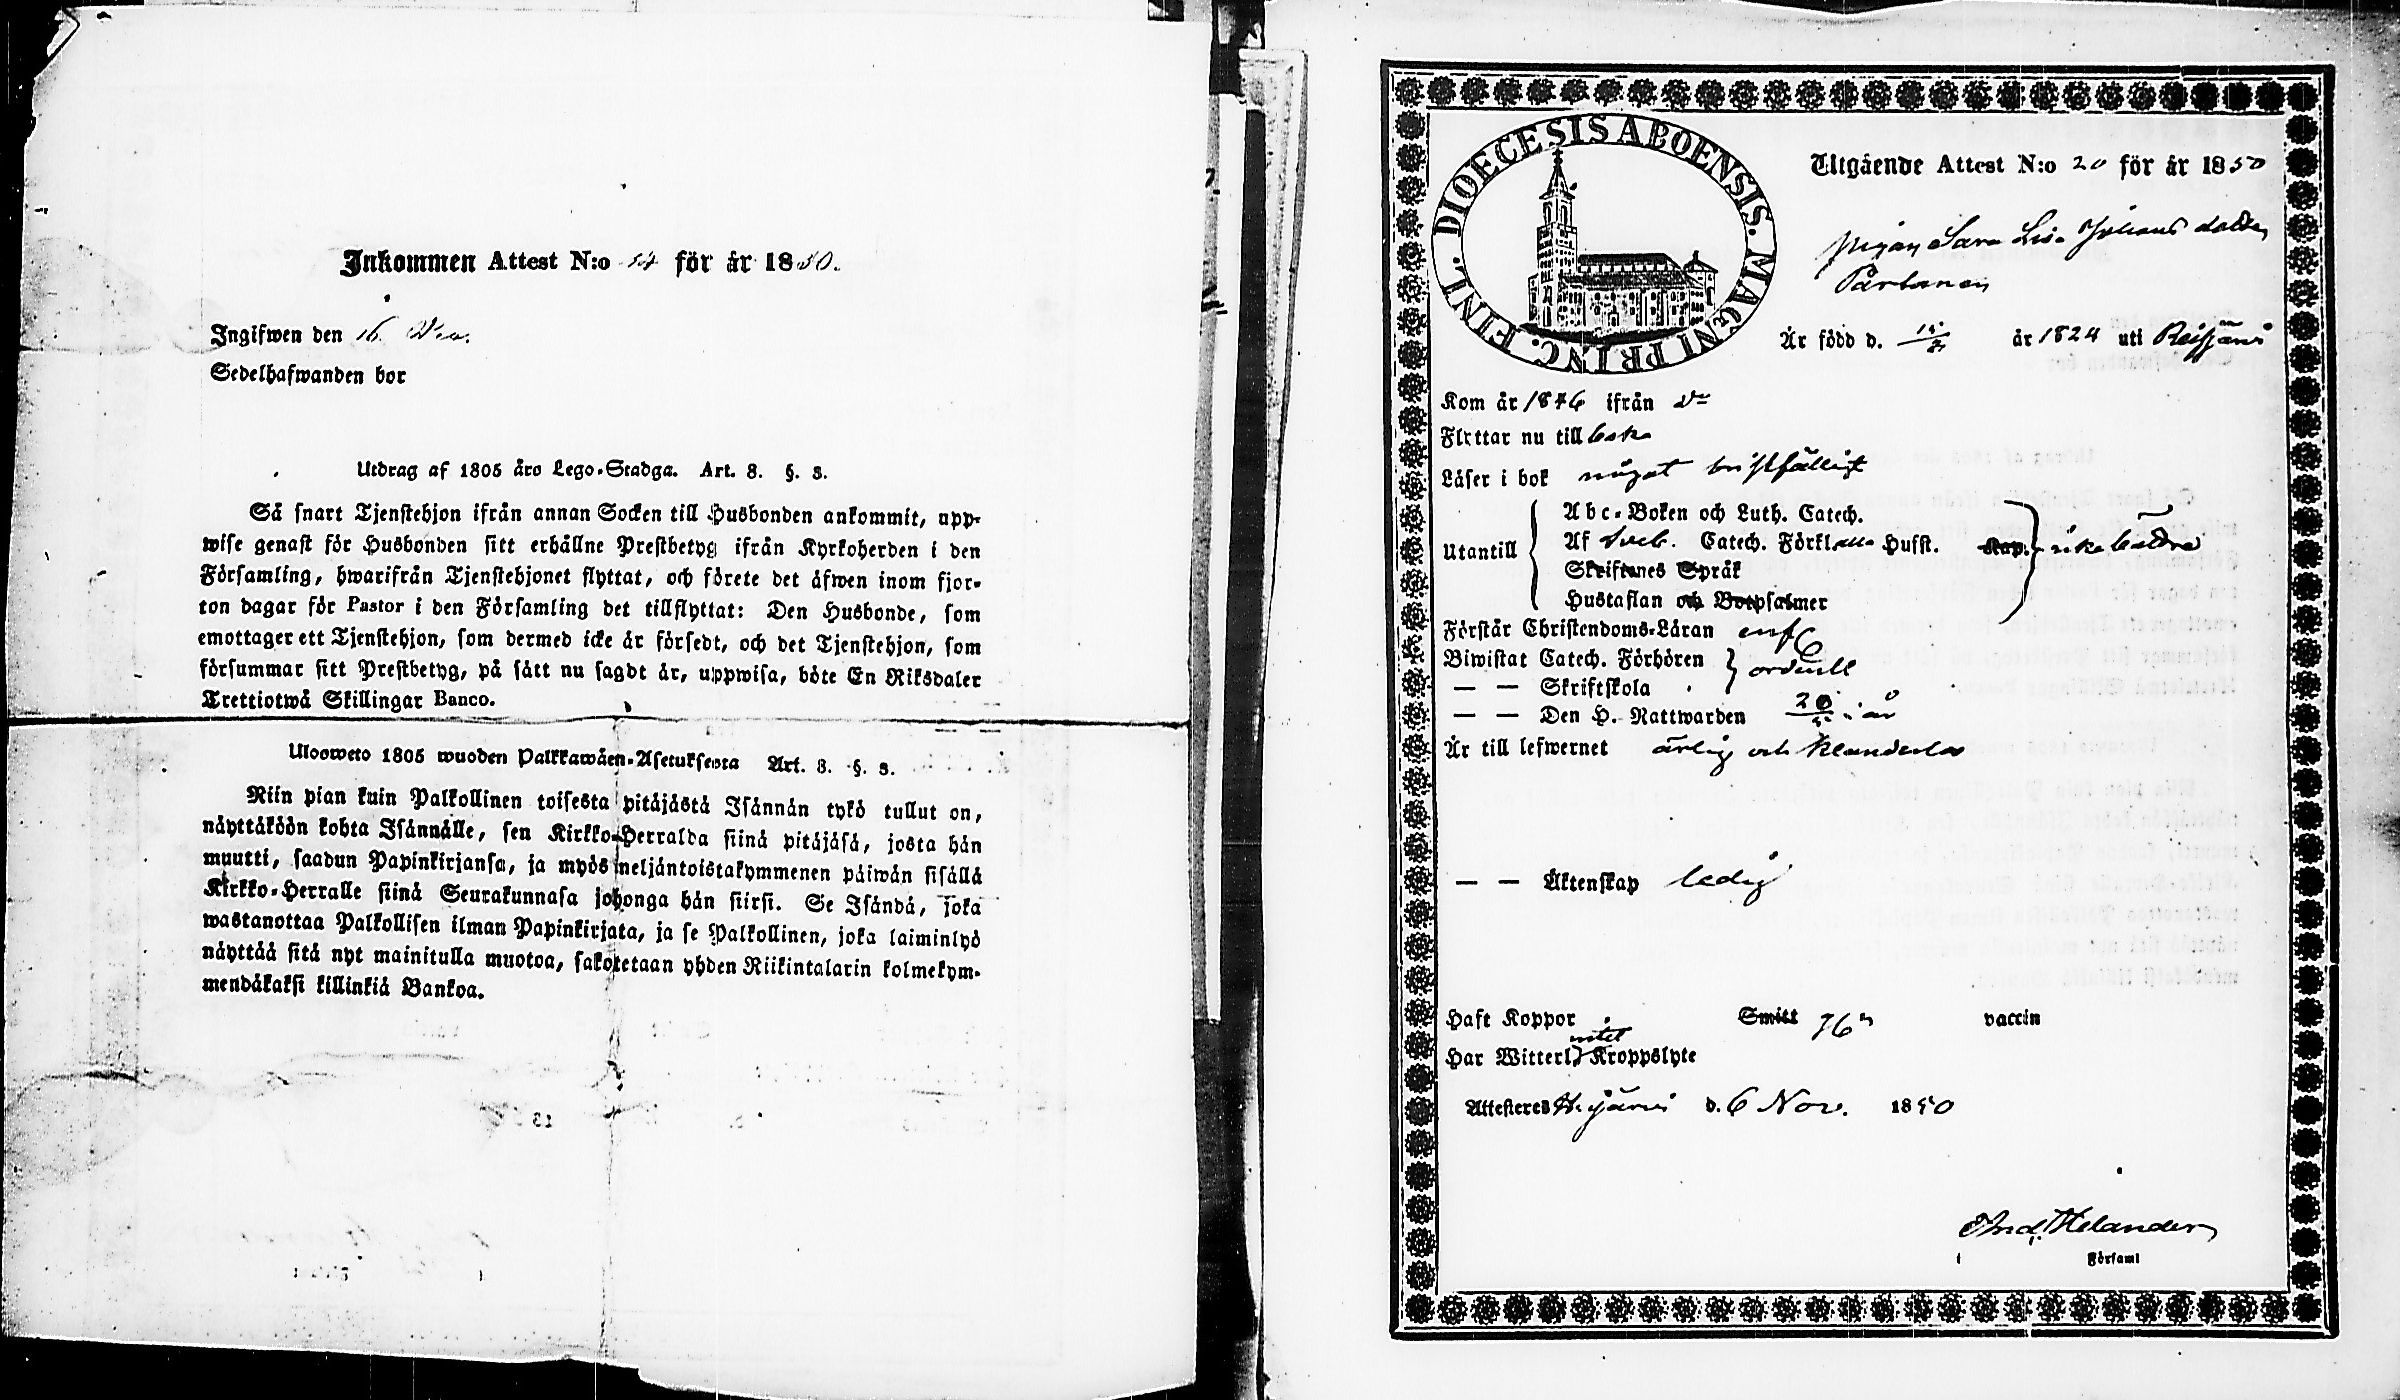 Inkommen Attest N:o 14 för år 1850.
Ingifwen den 16
Sedelhafwanden bor
Utdrag af 1805 åro Lego-Stadga. Art. 8. §. 3.
Så snart Tjenstehjon ifrån annan Socken till Husbonden ankommit, upp-
wise genast för Husbonden sitt erhållne Prestbetyg ifrån Kyrkoherden i den
Församling, hwarifrån Tjenstehjonet flyttat, och förete det äfwen inom fjor-
ton dagar för Pastor i den Församling det tillflyttat: Den Husbonde, som
emottager ett Tjenstehjon, som dermed icke är försedt, och det Tjenstehjon, som
försummar sitt Prestbetyg, på sätt nu sagdt är, uppwisa, böte En Riksdaler
Trettiotwå Skillingar Banco.
Ulosweto 1805 wuoden Palkkawäen-Asetuksesta Art. 8. §. 3.
Niin pian kuin Palkollinen toisesta pitäjästä Isännän tykö tullut on,
näyttäköön kohta Isännälle, sen Kirkko-Herralda siinä pitäjäsä, josta hän
muutti, saadun Papinkirjansa, ja myös neljäntoistakymmenen päiwän sisällä
Kirkko-Herralle siinä Seurakunnasa johonga hän siirsi. Se Isändä, joka
wastanottaa Palkollisen ilman Papinkirjata, ja se Palkollinen, joka laiminlyö
näyttää sitä nyt mainitulla muotoa, sakotetaan yhden Riikintalarin kolmekym-
mendäkaksi killinkiä Bankoa.
DIOECESIS ABOENSIS. MAGNI PRINC. FINL.
Utgående Attest N:o 20 för år 1850
pigan Sara Lisa Johans dotter
Partanen
Är född d. år 1824 uti Reisjärvi
Kom år 1846 ifrån do
Flyttar nu till baka
Läser i bok något bristfälligt
Utantill
Abc-Boken och Luth. Catech.
Af Sveb. Catech. Förkl. Husst. Kap.
Skriftenes Språk
Hustaflan och Botpsalmer
icke bättre
Förstår Christendoms-Läran enf
Biwistat Catech. Förhören
— — Skriftskola
ordentl
— — Den H. Nattwarden 20 i år
Är till lefwernet ärlig och klanderlös
— — Äktenskap ledig
Haft Koppor Smitt vaccin
intet
Har Witterl. Kroppslyte
Attesteras d. 6 Nov. 1850
And. Helander
i Församl